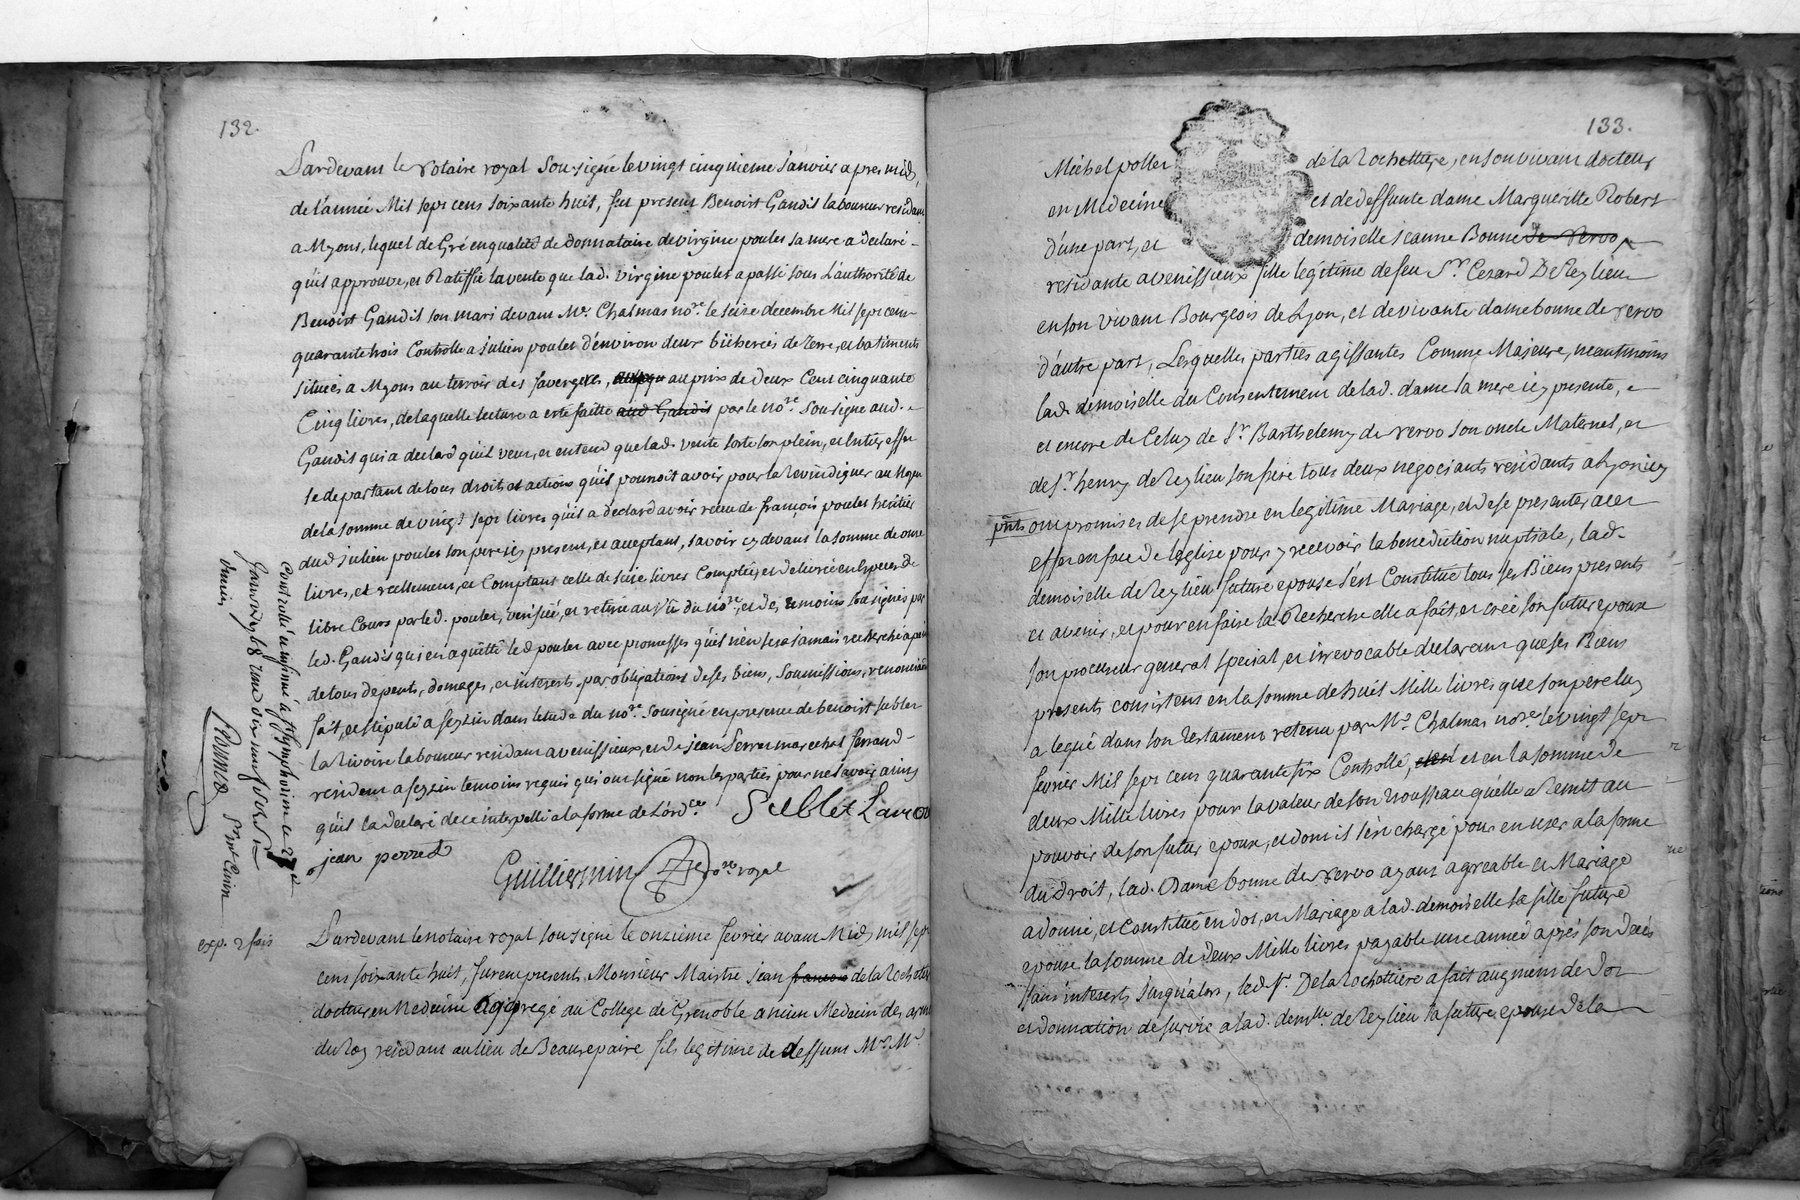 132.
Pardevant le Notaire royal Sousigné le vingt cinquieme Janvier apres midy,
de l'année Mil sept cens soixante huit, fut present Benoist Gandil laboureur residant
a Myons, lequel de Gré en qualité de donnataire de virgine poulet sa mere a declaré
qu'il approuve, et Ratiffie la vente que lad. virgine poulet a passé sous L'authorité de
Benoist Gandil son mari devant Me. Chalmas nore. le seize decembre Mil sept cens
quarante trois Controllé a Julien poulet d'environ deux bicherées de Terre, et batiments
situés a Myons au terroir des faverges, au prix de deux Cent cinquante
Cinq livres, de laquelle lecture a esté faitte aud Gandil par le nore. sousigné aud.
Gandil qui a declaré qu'il veut, et entend que lad. vente sorte son plein, et entier effet
se departant de tous droits et actions qu'il pourroit avoir pour la revindiquer au Moyen
de la somme de vingt sept livres qu'il a declaré avoir reçu de françois poulet heritier
dud Julien poulet son pere icy present, et acceptant, savoir cy devant la somme de onze
livres, et reellement, et Comptant celle de seize livres Comptée, et delivrée en Especes de
libre Cours par led. poulet, verifiée, et retirée au vû du nore. et des temoins sousignés par
led. Gandil qui en a quitté led poulet avec promesses qu'il n'en sera jamais recherché a peine
de tous depents, domages, et interests, par obligations de ses biens, soumissions, renonciations
fait, et stipulé a feyzin dans l'etude du nore. sousigné en presence de benoist sublet
la rivoire laboureur residant a venissieux, et de jean perret marechal ferrand
resident a feyzin temoins requis qui ont signé non les parties pour ne sçavoir ainsy
qu'ils l'a declaré de ce interpellé a la forme de L'ordce.
Sublet Larivo
jean perret
Guilliermin nore royal
Controllé et insinué a st symphorien ce 27e
Janvier 1768
exp. 2 fois
Pardevant le notaire royal sousigné le onzieme fevrier avant Midy mil sept
cens soixante huit, furent presents Monsieur Maistre jean francois de la Rochette
docteur en Medecine aggregé au College de Grenoble ancien Medecin des armées
du Roy residant au lieu de Beaurepaire fils legitime de deffunt Mr. Me
133.
Michel pollet de la Rochettiere, en son vivant docteur
en Medecine et de deffunte dame Margueritte Robert
d'une part, et demoiselle Jeanne Bonne de Vervo
residante a venissieux fille legitime de feu Sr. Cezard De Reylieu
en son vivant Bourgeois de Lyon, et de vivante dame bonne de vervo
d'autre part, Lesquelles parties agissantes Comme Majeure, neantmoins
lad. demoiselle du Consentement de lad. dame sa mere icy presente,
et encore de Celuy de Sr. Barthelemy de vervo son oncle Maternel, et
de Sr. henry de Reylieu son frere tous deux negociants residants a Lyon icy
pnts ont promis et de se prendre en legitime Mariage, et de se presenter a cet
effet en face de l'eglise pour y recevoir la benediction nuptiale, lad.
demoiselle de Reylieu future epouse s'est Constitué tous ses Biens presents
et avenir, et pour en faire la Recherche elle a fait, et créé son futur epoux
son procureur general special et irrevocable declarant que ses Biens
presents consistent en la somme de huit Mille livres que son pere luy
a legué dans son testament retenu par Me. Chalmas nore le vingt sept
fevrier Mil sept cens quarante six Controllé, et en la somme de
deux Mille livres pour la valeur de son trousseau qu'elle a Remis au
pouvoir de son futur epoux, et dont il s'en chargé pour en user a la forme
du droit, lad. Dame bonne de vervo ayant agreable ce Mariage
a donné, et Constitué en dot, et Mariage a lad. demoiselle sa fille future
epouse la somme de deux Mille livres payable une année aprés son décés
sans interests jusqu'alors, led Sr. De la Rochettiere a fait augment de dot
et donnation de survie a lad. demlle. de Reylieu sa future epouse de la